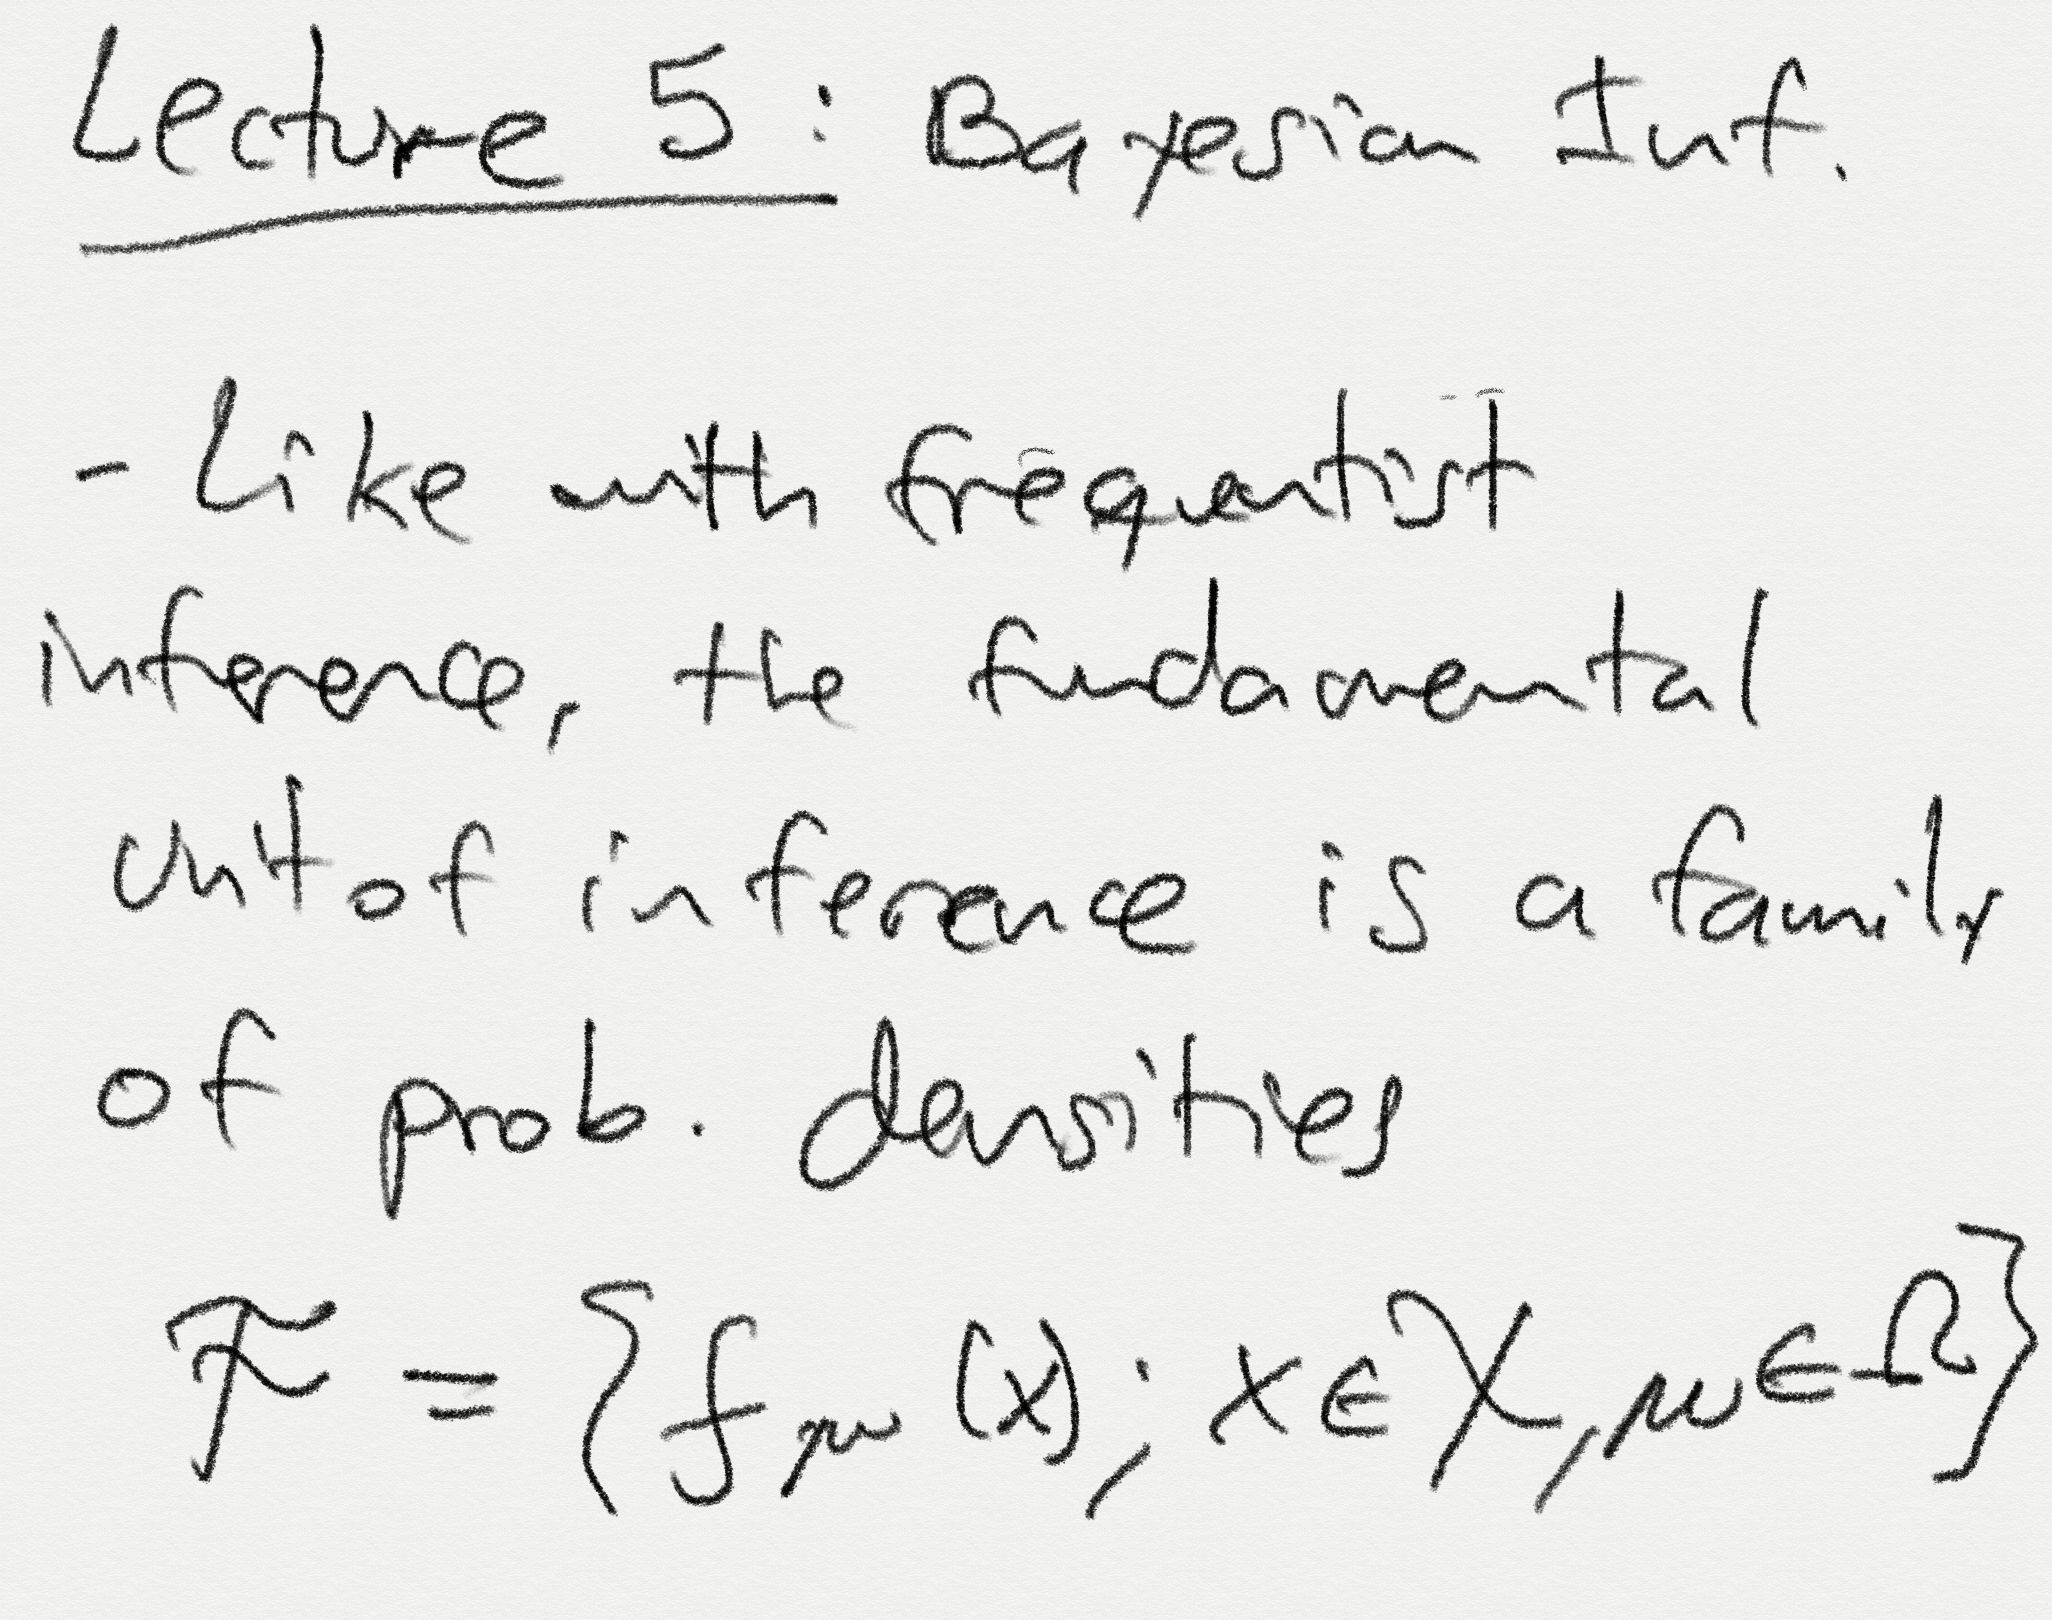 Lecture 5: Bayesian Inf.
- Like with frequentist
inference, the fundamental
unit of inference is a family
of prob. densities
𝓕 = {f_μ(x); x ∈ 𝒳, μ ∈ Ω}